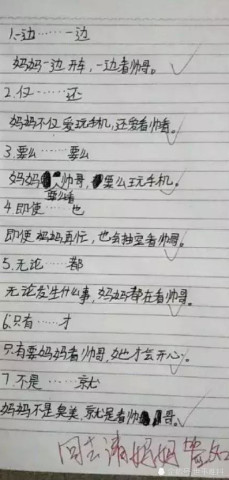 1.一边……一边
妈妈一边开车，一边看帅哥。
2.仅……还
妈妈不仅爱玩手机，还爱看帅哥。
3.要么……要么
妈妈要么看帅哥，要么玩手机。
4.即使……也
即使妈妈再忙，也会抽空看帅哥。
5.无论……都
无论发生什么事，妈妈都在看帅哥。
6.只有……才
只有要妈妈看帅哥，她才会开心。
7.不是……就
妈妈不是臭美，就是看帅哥。
回去请妈妈签字